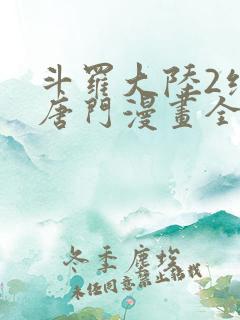 斗羅大陸2
唐門漫畫全
冬季塵埃
未任同意禁止轉載